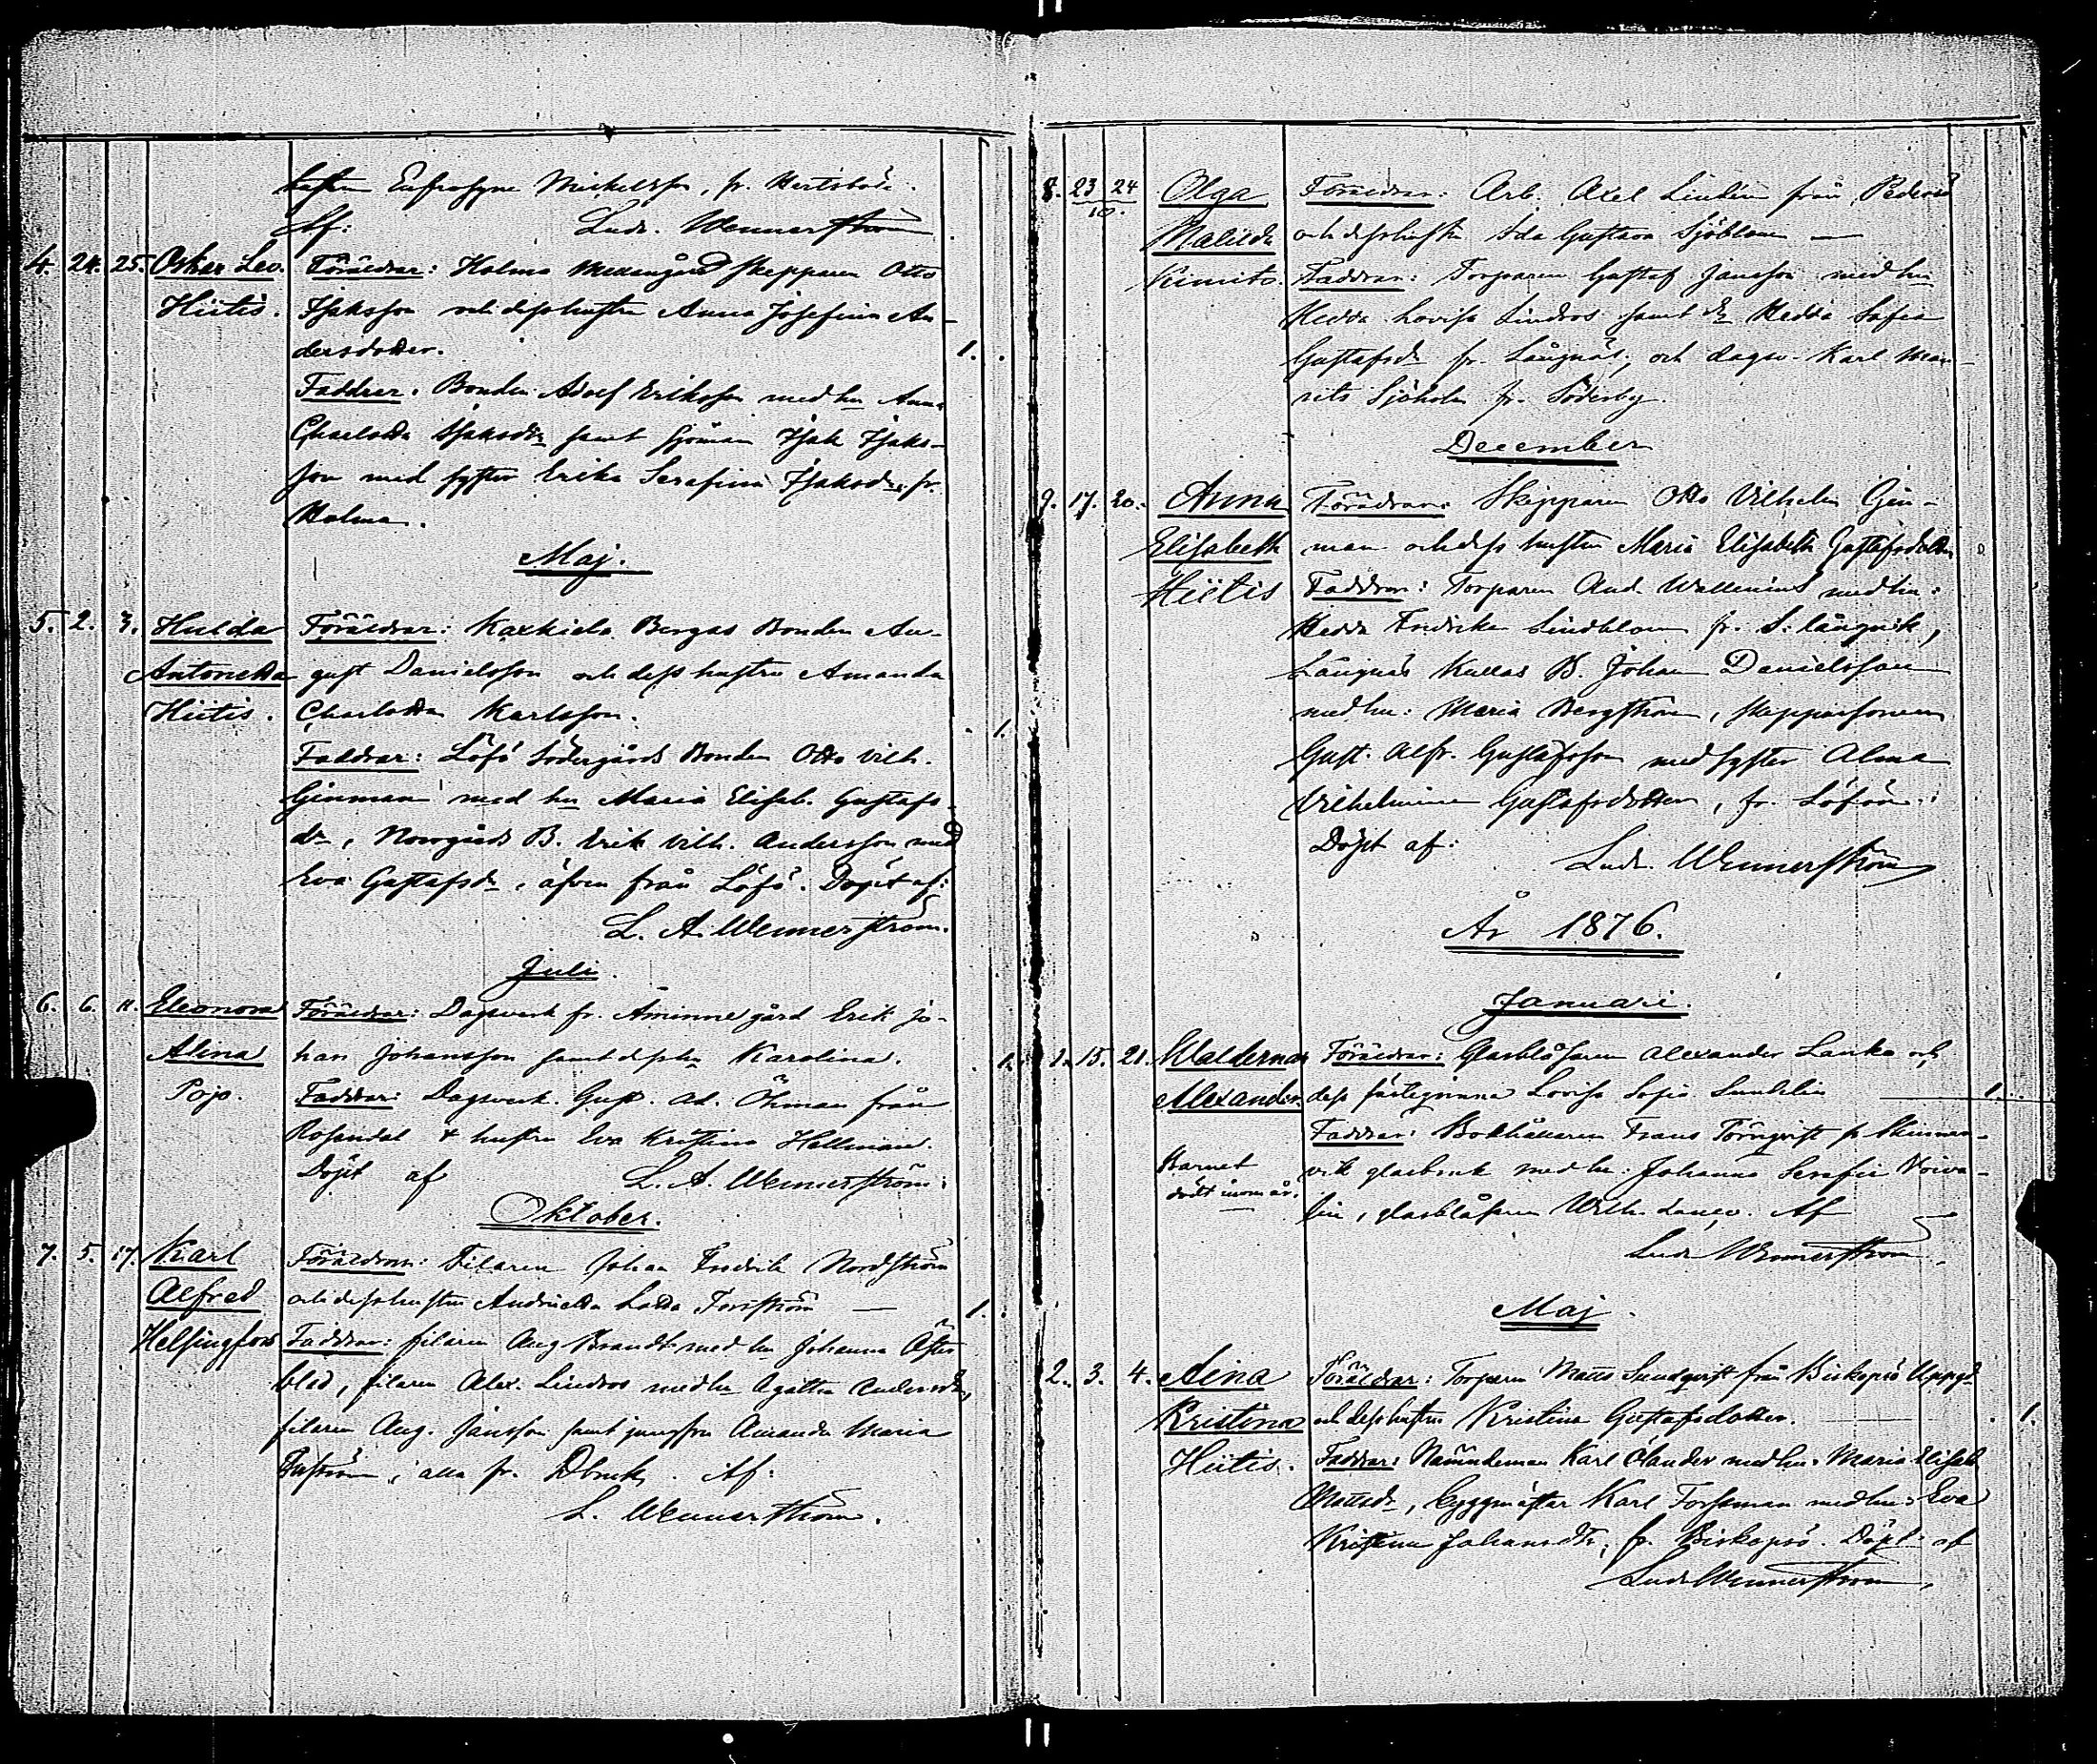 hustru Eufrosyne Mickelsson, fr. Hertsböle.
Af: Ludv. Wennerström
4. 24. 25. Oskar Leo. Föräldrar: Holma Mellangård skepparen Otto
Hiitis. Isaksson och dess hustru Anna Josefina An-
dersdotter. 1.
Faddrar: Bonden Adolf Eriksson med hu Anna
Charlotta Isaksdtr samt sjöman Isak Isaks-
son med syster Erika Serafina Isaksdr, fr.
Holma.
Maj.
5. 2. 3. Hulda Föräldrar: Kaxkiela Bergas Bonden Au-
Antonetta gust Danielsson och dess hustru Amanda
Hiitis. Charlotta Karlsson. 1.
Faddrar: Löfö Södergårds Bonden Otto Vilh.
Ginman med hu Maria Elisab. Gustafs-
dr, Norrgårds B. Erik Vilh. Andersson med
Eva Gustafsdr, äfven från Löfö. Döpt af:
L. A. Wennerström.
Juli.
6. 6. 11. Eleonora Föräldrar: Dagsverk. fr. Åminne gård Erik Jo-
Alina han Johansson samt dess hu Karolina. 1.
Pojo. Faddrar: Dagsverk. Gust. Ad. Öhman från
Rosendal & hustru Eva Kristina Hellman.
Döpt af L. A. Wennerström.
Oktober.
7. 5. 17. Karl Föräldrar: Filaren Johan Fredrik Nordström
Alfred och dess hustru Andrietta Lotta Forsström — 1.
Helsingfors Faddrar: filaren Aug. Brandt med hu Johanna Öster-
blad, filaren Alex. Lindros med hu Agatha Andersdtr,
filaren Aug. Jansson samt jungfru Amanda Maria
alla fr. Dbruk. Af:
L. Wennerström.
8. 23/10. 24 Olga Föräldrar: Arb. Axel Lindén från Pedersö
Matilda och dess hustru Ida Gustava Sjöblom —
Kimito. Faddrar: Torparen Gustaf Jansson med hu
Hedda Lovisa Lindros samt dr Hedda Sofia
Gustafsdr fr. Långnäs, och dagsv. Karl Mau-
rits Sjöholm fr. Söderby.
December
9. 17. 20. Anna Föräldrar: Skepparen Otto Vilhelm Gin-
Elisabeth man och dess hustru Maria Elisabeth Gustafsdotter
Hiitis Faddrar: Torparen And. Wallenius med hu:
Hedda Fredrika Lindblom fr. S. långvik,
Långnäs Kullas B. Johan Danielsson
med hu: Maria Bergström, skepparsonen
Gust. Alfr. Gustafsson med syster Alma
Vilhelmina Gustafsdotter, fr. Löfö.
Döpt af:
Ludv. Wennerström
År 1876.
Januari.
1. 15. 21. Waldemar Föräldrar: Glasblåsaren Alexander Lanko och
Alexander. dess fästeqvinna Lovisa Sofia Sundelin 1.
Faddrar: Bokhållaren Frans Törnqvist fr Skinnar-
Barnet vik glasbruk med hu: Johanna Serafia
dödt inom år. glasblåsaren Wilh. Af
Ludv Wennerström.
Maj.
2. 3. 4. Aina Föräldrar: Torparen Matts Sundqvist från Biskopsö Uppgd
Kristina och dess hustru Kristina Gustafsdotter. 1.
Hiitis. Faddrar: Nämndeman Karl Ölander med hu: Maria Elisab
Mattsdr, byggmästar Karl Forsman med hu: Eva
Kristina Johansdtr, fr. Biskopsö. Döpt af
Ludv Wennerström.